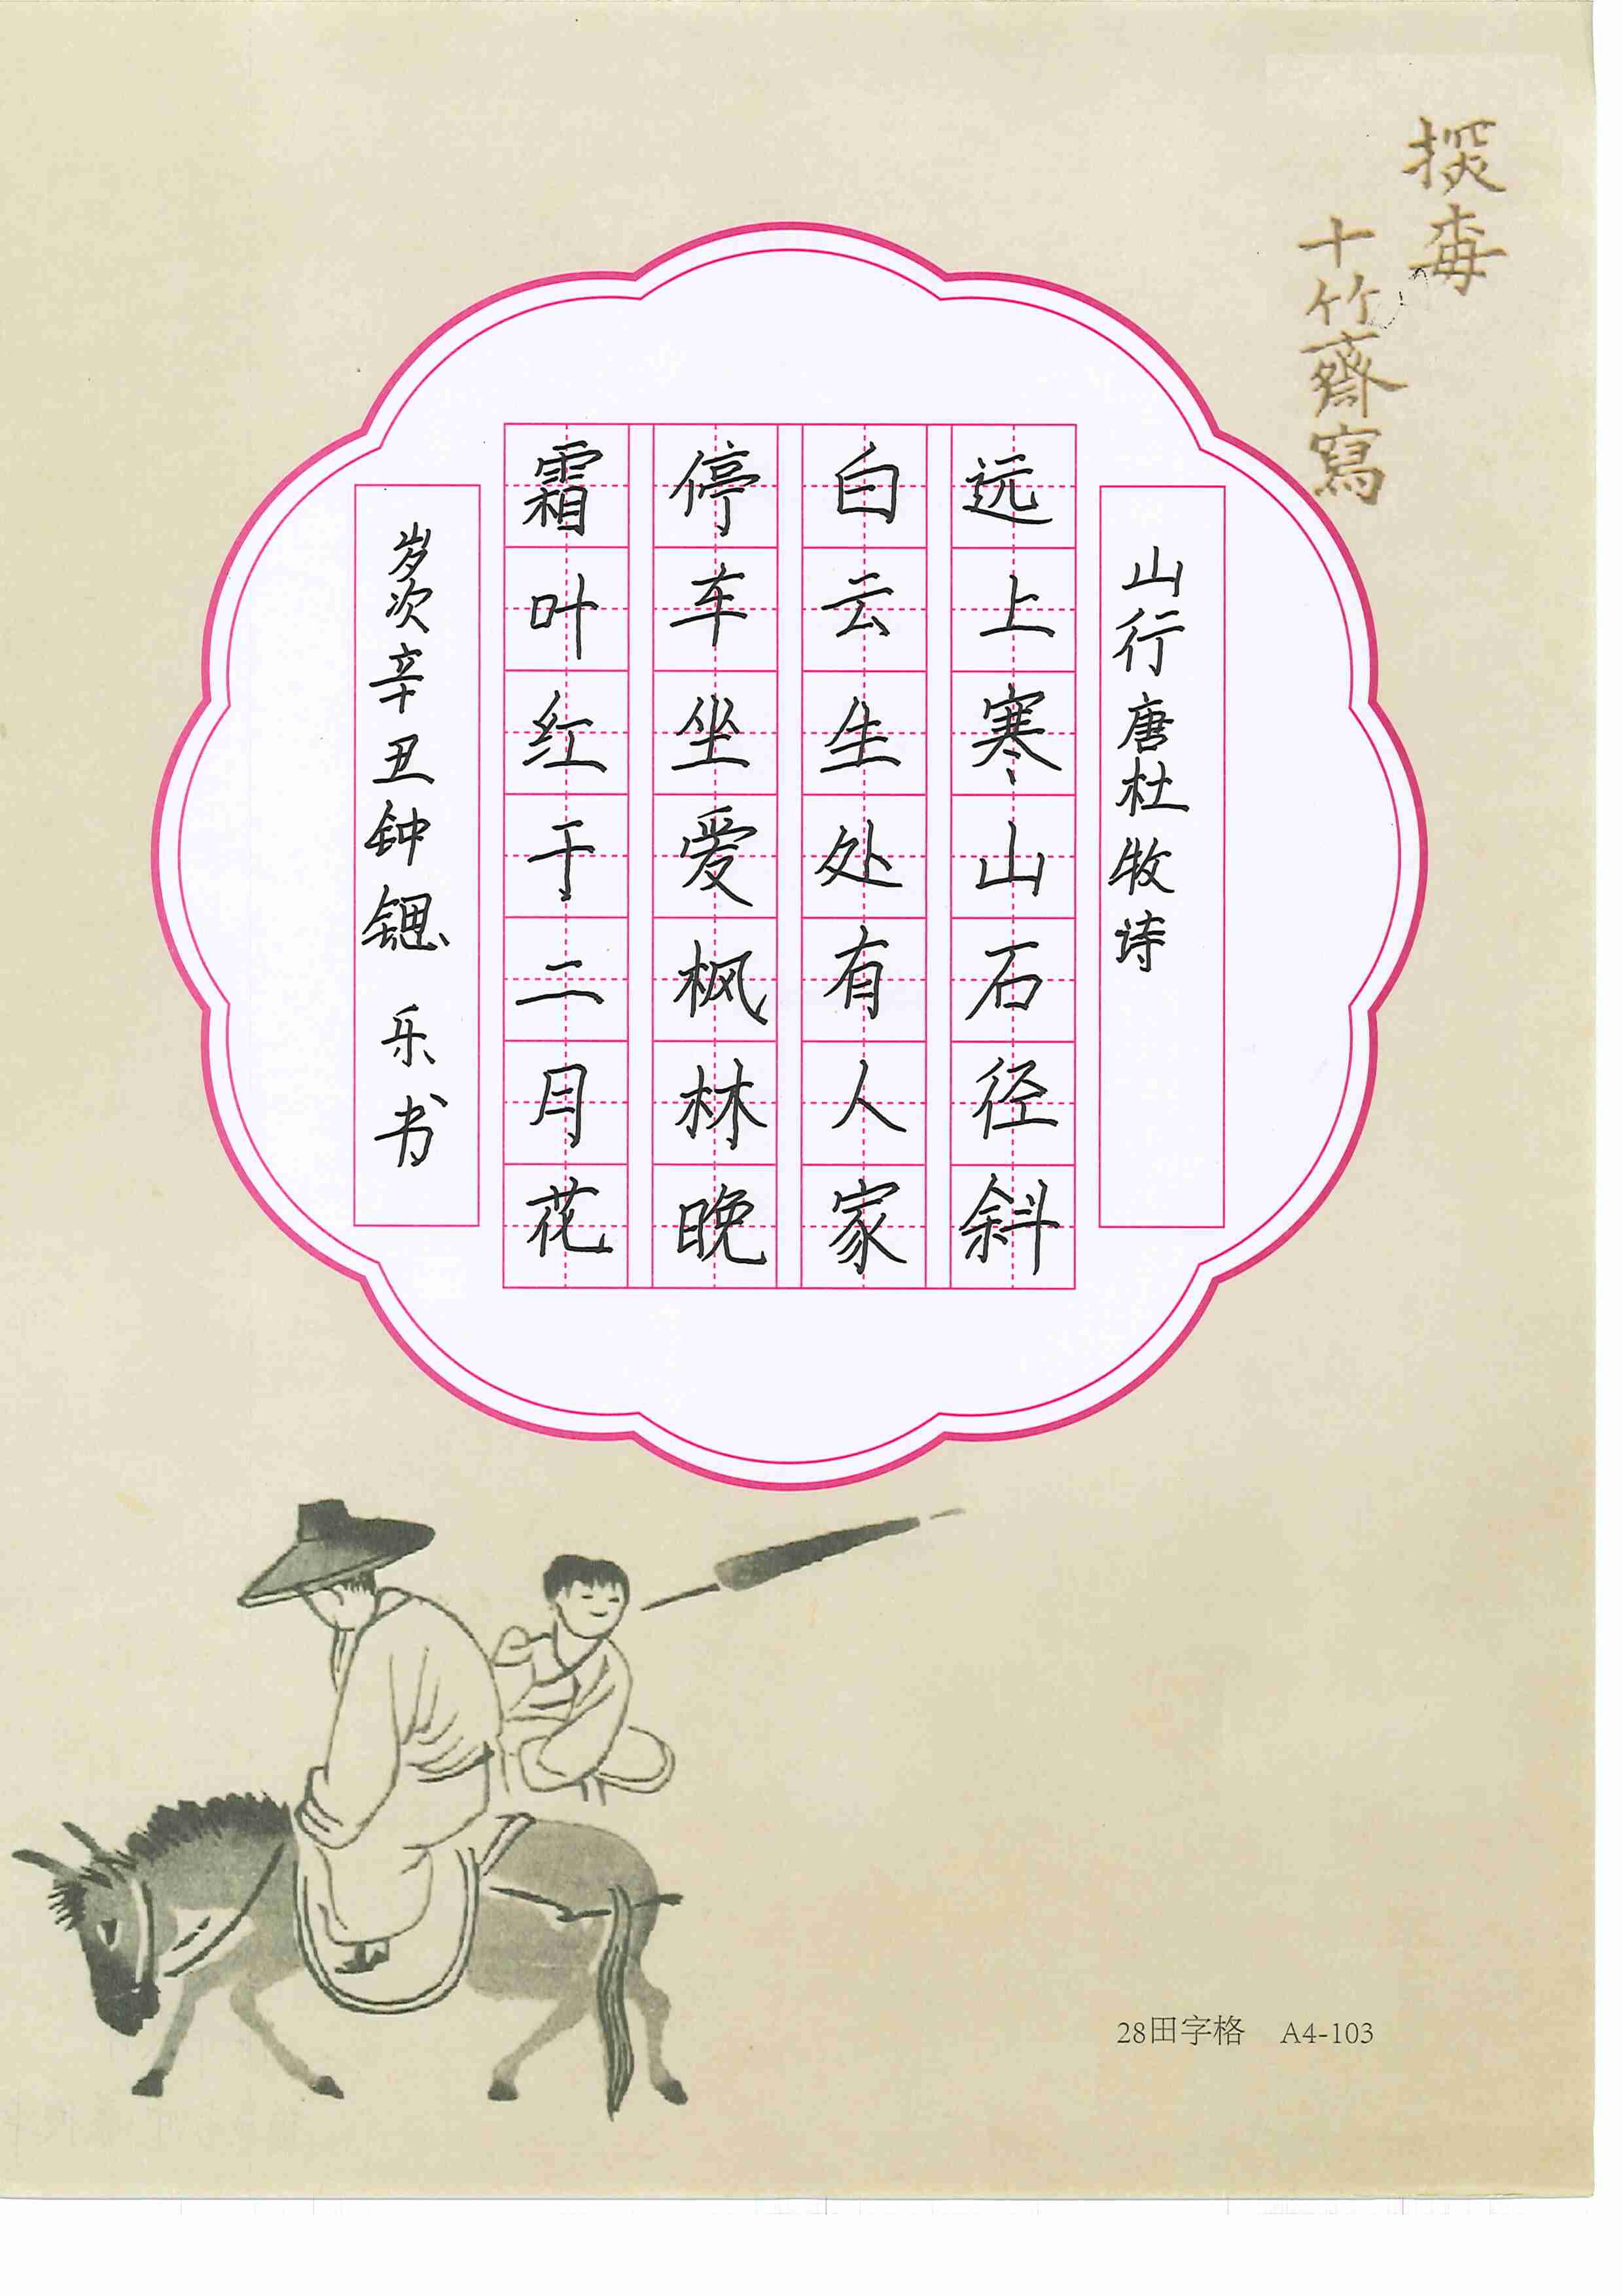 探梅
十竹齋寫
山行唐杜牧诗
远上寒山石径斜
白云生处有人家
停车坐爱枫林晚
霜叶红于二月花
岁次辛丑钟锶乐书
28田字格 A4-103